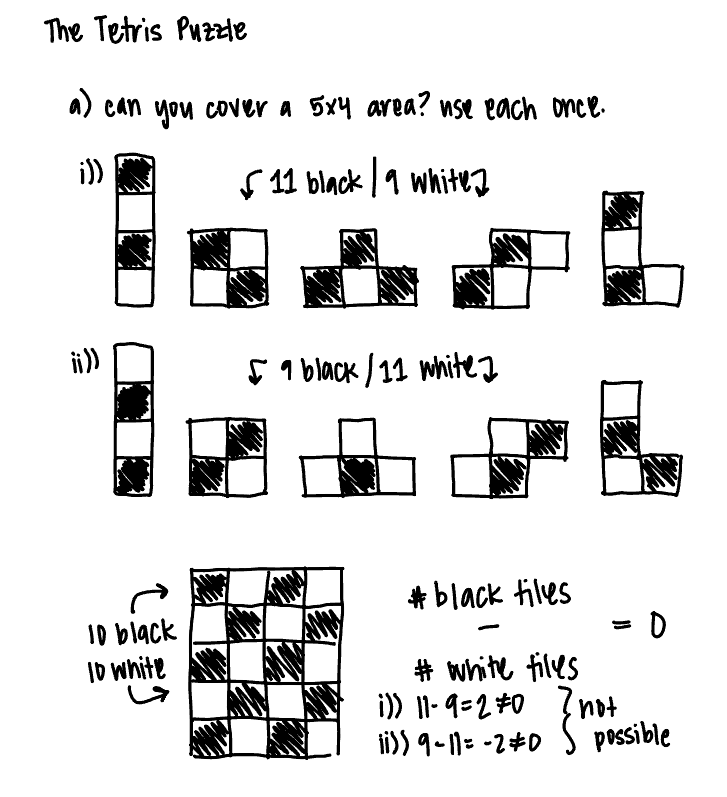 The Tetris Puzzle
a) can you cover a 5x4 area? use each once.
i)) 11 black | 9 white
ii)) 9 black / 11 white
10 black
10 white
# black tiles
− = 0
# white tiles
i)) 11-9=2≠0
ii)) 9-11=-2≠0
not
possible